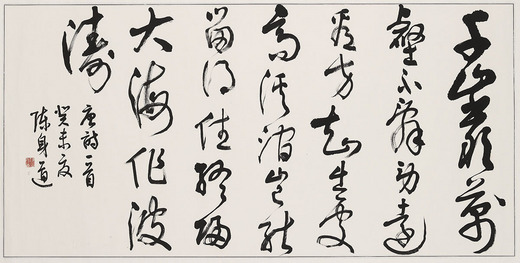 千巖萬
壑不辭勞遠
看方知出處
高溪澗豈能
留得住終歸
大海作波
濤
唐詩一首
癸未夏
陳身道